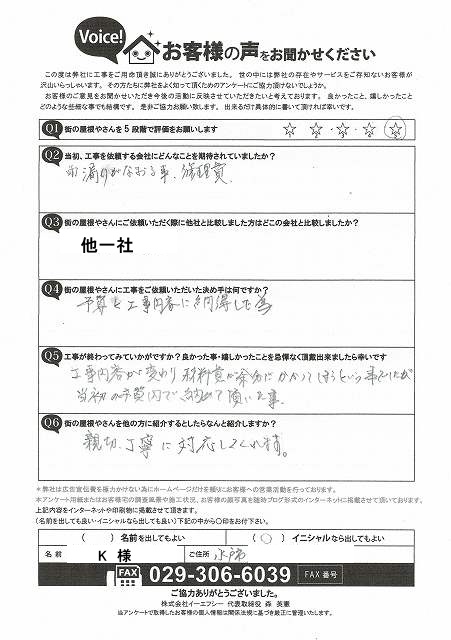 Voice!
お客様の声をお聞かせください
この度は弊社に工事をご用命頂き誠にありがとうございました。世の中には弊社の存在やサービスをご存知ないお客様が
沢山いらっしゃいます。その方たちに弊社をよく知って頂くためのアンケートにご協力頂けないでしょうか。
お客様のご意見をお聞かせいただき今後の活動に反映させていただきたいと考えております。良かったこと、嬉しかったこと
どのような些細な事でも結構です。是非ご協力お願い致します。出来るだけ具体的に書いて頂ければ幸いです。
Q1 街の屋根やさんを5段階で評価をお願いします ☆ ☆ ☆ ☆ ☆
Q2 当初、工事を依頼する会社にどんなことを期待されていましたか?
水漏りがなおる事、修理費
Q3 街の屋根やさんにご依頼いただく際に他社と比較しました方はどこの会社と比較しましたか?
他一社
Q4 街の屋根やさんに工事をご依頼いただいた決め手は何ですか?
予算と工事内容に納得した為
Q5 工事が終わってみていかがですか?良かった事・嬉しかったことを忌憚なく頂戴出来ましたら幸いです
工事内容が変わり材料費が余分にかかってしまうという事でしたが
当初の予算内で納めて頂いた事。
Q6 街の屋根やさんを他の方に紹介するとしたらなんと紹介しますか?
親切、丁寧に対応してくれ
*弊社は広告宣伝費を極力かけない為にホームページだけを頼りにお客様への営業活動を行っております。
本アンケート用紙またはお客様宅の調査風景や施工状況、お客様の顔写真を随時ブログ形式のインターネットに掲載させて頂いております。
上記内容をインターネットや印刷物に掲載させて頂きます。
(名前を出しても良い・イニシャルなら出しても良い)下記の中から〇印をお付下さい。
( )名前を出してもよい (〇)イニシャルなら出してもよい
名前 K 様 ご住所 水戸市
FAX 029-306-6039 FAX番号
ご協力ありがとうございました。
株式会社イーエフシー 代表取締役 森 英憲
当アンケートで取得したお客様の個人情報は関係法規に基づき厳正に管理いたします。